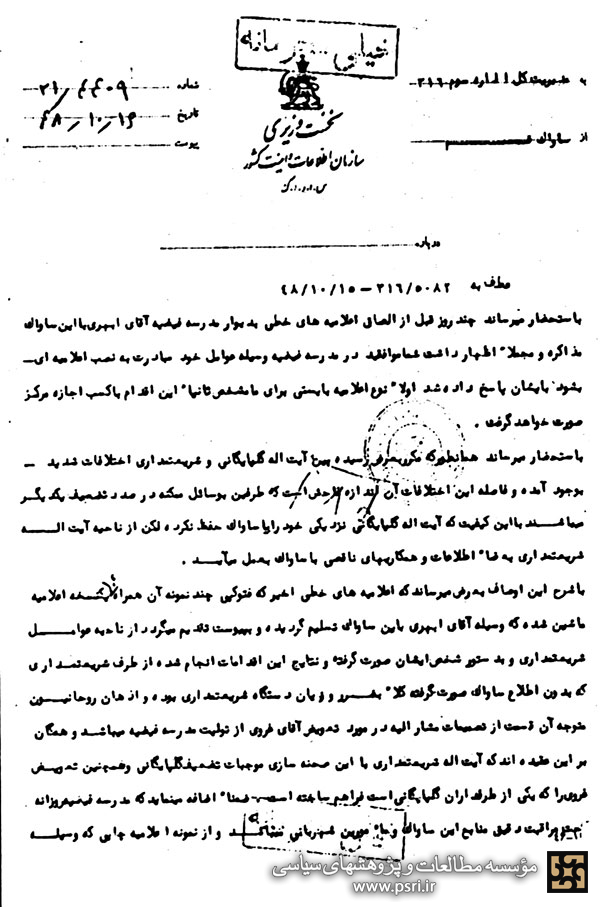 خیلی محرمانه
به مدیریت کل اداره سوم ۳۱۶
شماره ۲۱/۴۴۰۹
از ساواک قم
تاریخ ۴۸/۱۰/۱۶
پیوست
نخست وزیری
سازمان اطلاعات و امنیت کشور
س.ا.و.ا.ک
درباره
عطف به ۳۱۶/۵۰۸۲ – ۴۸/۱۰/۱۵
باستحضار میرساند چند روز قبل از الصاق اعلامیه های خطی بدیوار مدرسه فیضیه آقای ابهری با این ساواک
مذاکره و مجملا" اظهار داشت شما موافقید در مدرسه فیضیه وسیله عوامل خود مبادرت به نصب اعلامیه ای –
بشود بایشان پاسخ داده شد اولا" نوع اعلامیه بایستی برای ما مشخص ثانیا" این اقدام با کسب اجازه مرکز
صورت خواهد گرفت .
باستحضار میرساند همانطورکه مکرر بعرض رسیده بین آیت اله گلپایگانی و شریعتمداری اختلافات شدید –
بوجود آمده و فاصله این اختلافات آن اندازه فاحش است که طرفین بوسائل ممکنه در صدد تضعیف یکدیگر
میباشند با این کیفیت که آیت اله گلپایگانی نزدیکی خود را با ساواک حفظ نکرده لکن از ناحیه آیت الــه
شریعتمداری بدفعا" اطلاعات و همکاریهای ناقصی با ساواک بعمل میآیــد .
باشرح این اوصاف بعرض میرساند که اعلامیه های خطی اخیر که فتوکپی چند نمونه آن همراه یک نسخه اعلامیه
ماشین شده که وسیله آقای ابهری باین ساواک تسلیم گردیده و بپیوست تقدیم میگردد از ناحیه عوامــل
شریعتمداری و بدستور شخص ایشان صورت گرفته و نتایج این اقدامات انجام شده از طرف شریعتمــداری
که بدون اطلاع ساواک صورت گرفته کلا" بضرر و زیان دستگاه شریعتمداری بوده و اذهان روحانیــون
متوجه آن قسمت از تصمیمات مشارالیه در مورد تعویض آقای فروی از تولیت مدرسه فیضیه میباشد و همگان
بر این عقیده اند که آیت اله شریعتمداری با این صحنه سازی موجبات تضعیف گلپایگانی و همچنین تعویــض
فروی را که یکی از طرفداران گلپایگانی است فراهم ساخته است . ضمنا" اضافه مینماید که مدرسه فیضیه روزانه
تحت مراقبت دقیق منابع این ساواک و مامورین شهربانی و از نمونه اعلامیه چاپی که وسیلــه
مؤسسه مطالعات و پژوهشهای سیاسی
www.psri.ir